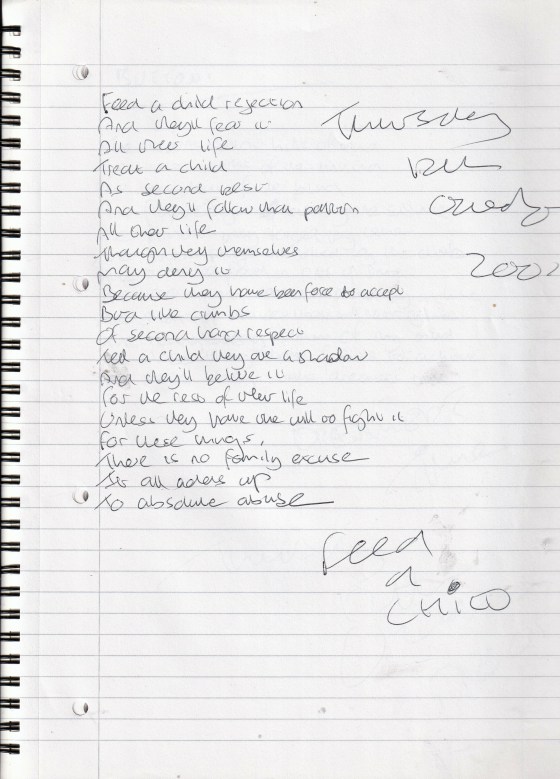 Feed a child rejection
And they'll fear it
All their life
Treat a child
As second best
And they'll follow that pattern
All their life
Though they themselves
may deny it
Because they have been force to accept
But a like crumbs
Of second hand respect
Feed a child they are a shadow
And they'll believe it
For the rest of their life
Unless they have the will to fight it
For these things,
There is no family excuse
It all adds up
To absolute abuse
Thursday
2002
Feed
a
CHILD